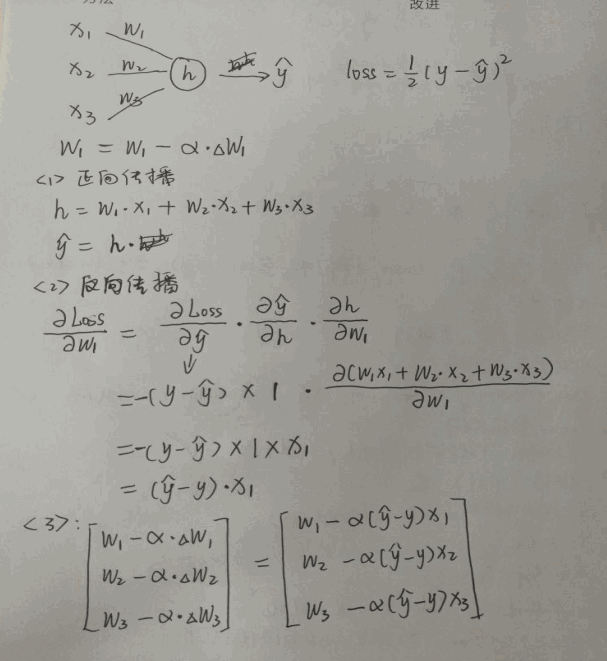 改进
x₁ w₁
x₂ w₂ h → ŷ loss = 1/2 (y - ŷ)²
x₃ w₃
w₁ = w₁ - α·△w₁
<1> 正向传播
h = w₁·x₁ + w₂·x₂ + w₃·x₃
ŷ = h·
<2> 反向传播
∂Loss/∂w₁ = ∂Loss/∂ŷ · ∂ŷ/∂h · ∂h/∂w₁
↓
= -(y - ŷ) × 1 · ∂(w₁x₁ + w₂·x₂ + w₃·x₃)/∂w₁
= -(y - ŷ) × 1 × x₁
= (ŷ - y)·x₁
<3>: [w₁ - α·△w₁] = [w₁ - α(ŷ-y)x₁]
[w₂ - α·△w₂] [w₂ - α(ŷ-y)x₂]
[w₃ - α·△w₃] [w₃ - α(ŷ-y)x₃]